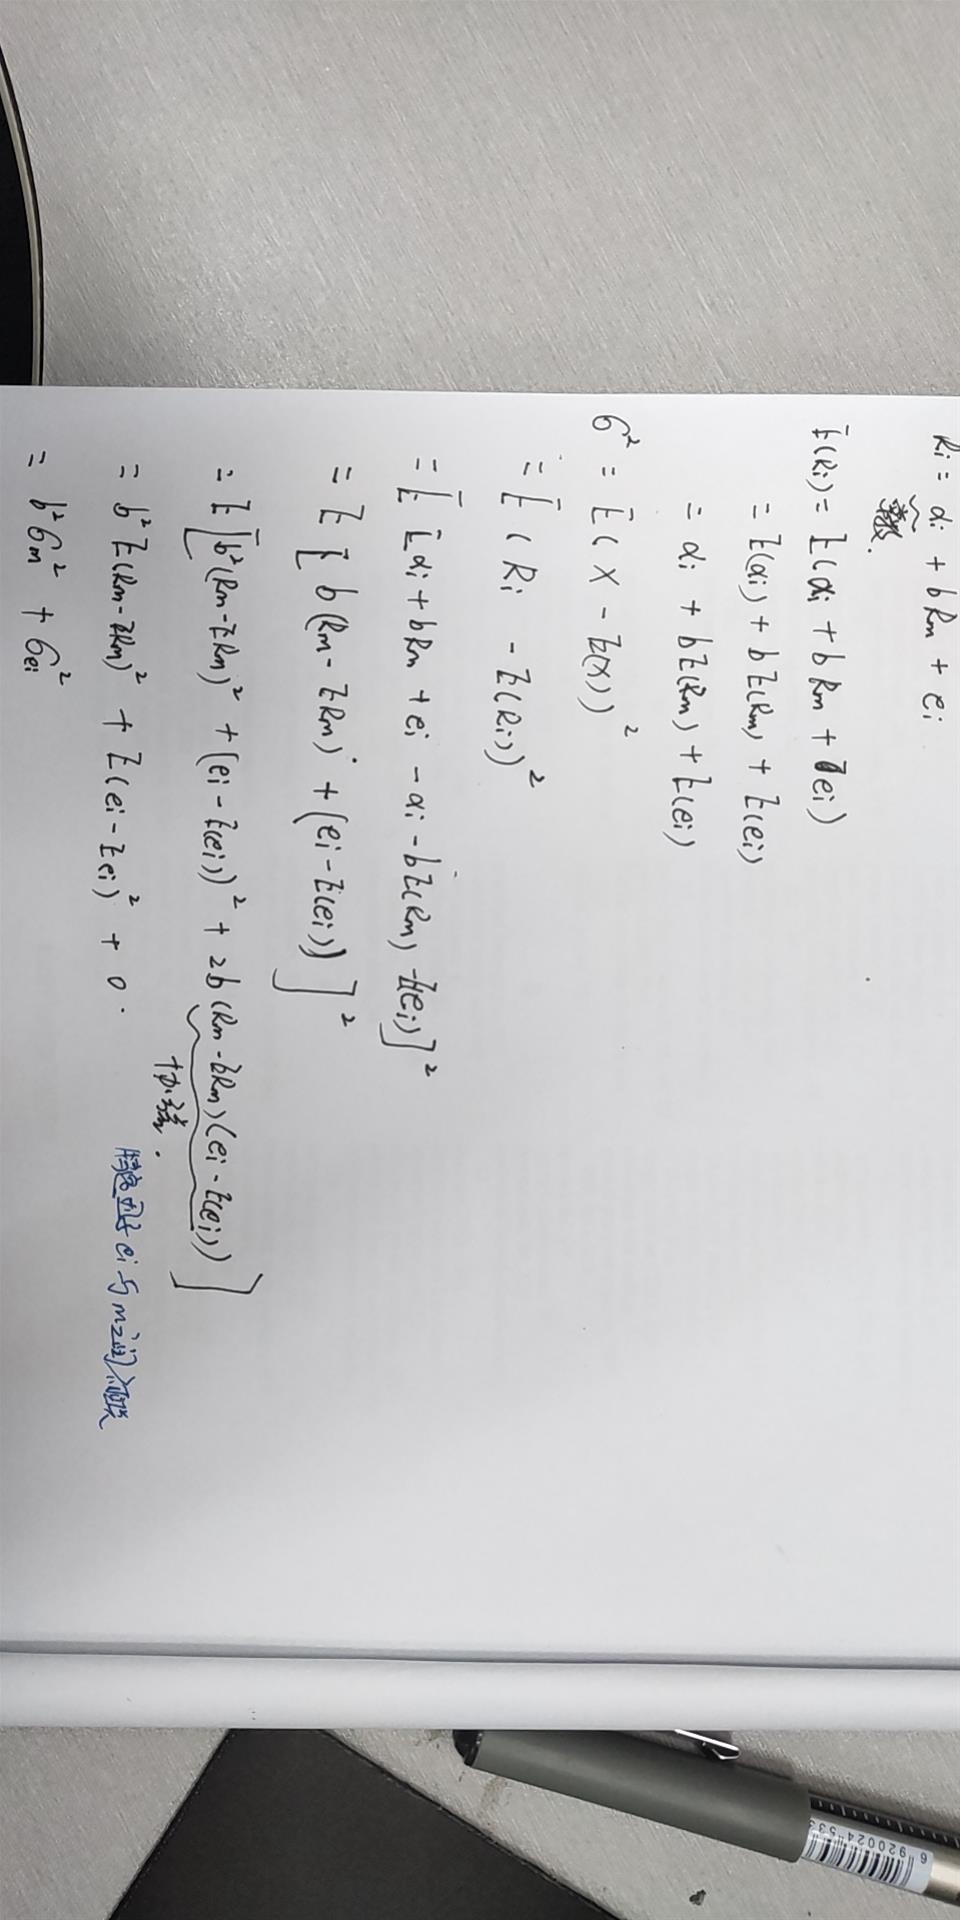 Ri = αi + bRm + ei
常数.
E(Ri) = E(αi + bRm + ei)
= E(αi) + bE(Rm) + E(ei)
= αi + bE(Rm) + E(ei)
σ² = E(X - E(X))²
= E(Ri - E(Ri))²
= E[αi + bRm + ei - αi - bE(Rm) - E(ei)]²
= E[b(Rm - ERm) + (ei - E(ei))]²
= E[b²(Rm - ERm)² + (ei - E(ei))² + 2b(Rm - ERm)(ei - E(ei))]
= b²E(Rm - ERm)² + E(ei - Eei)² + 0.
ei与m之间
= b²σm² + σei²
6 920024 533